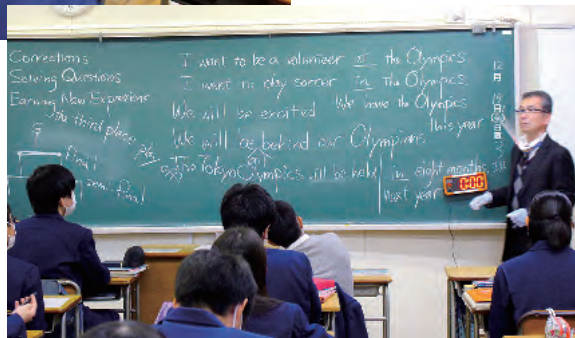 Corrections
Solving Questions
Earning New Expressions
The third place play off
final
semi final
I want to be a volunteer at the Olympics.
I want to play soccer in the Olympics.
We will be excited
We have the Olympics
this year
We will be behind our Olympians
The Tokyo Olympics will be held
in eight months
next year
12
月
0:00